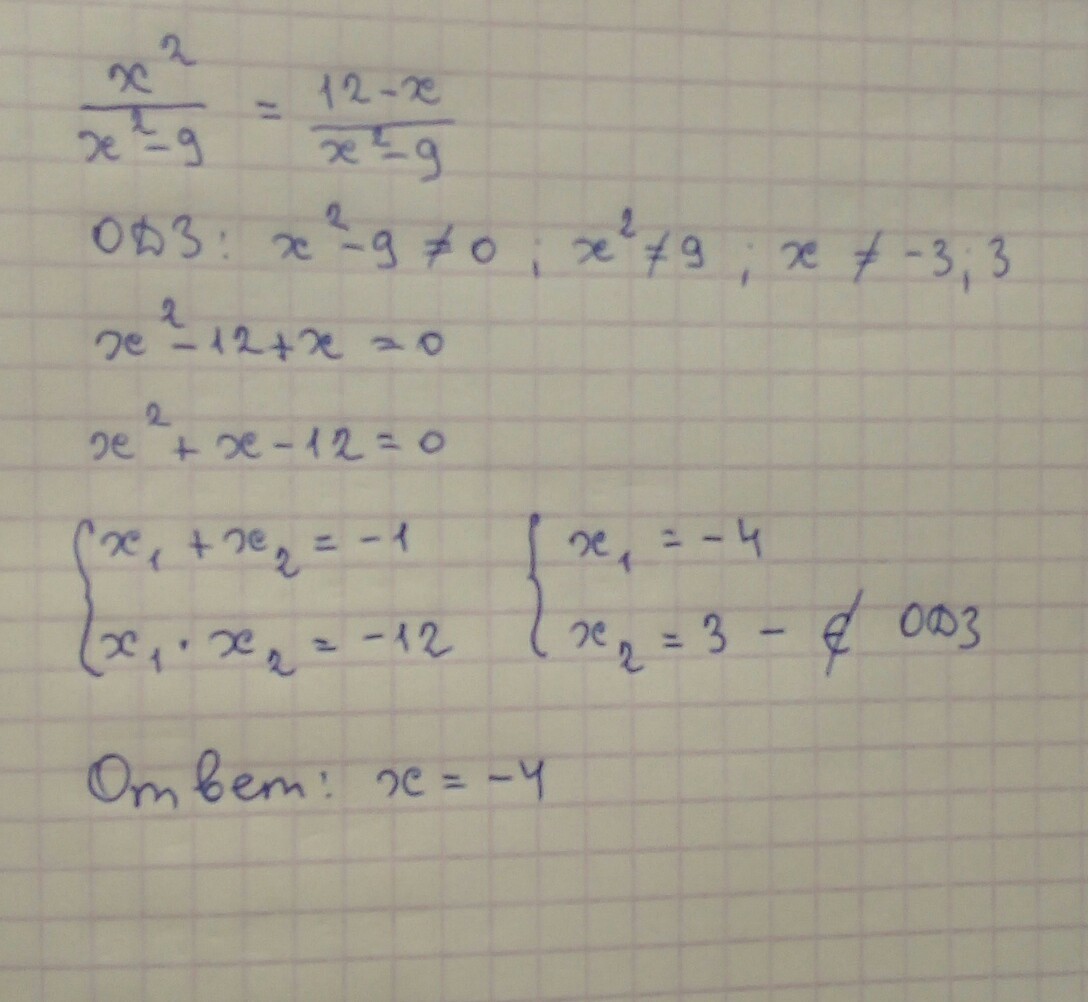 x²/(x²-9) = (12-x)/(x²-9)
ОДЗ: x²-9≠0 ; x²≠9 ; x ≠ -3; 3
x²-12+x = 0
x²+x-12=0
{x₁+x₂=-1 {x₁=-4
{x₁·x₂=-12 {x₂=3 - ∉ ОДЗ
Ответ: x=-4